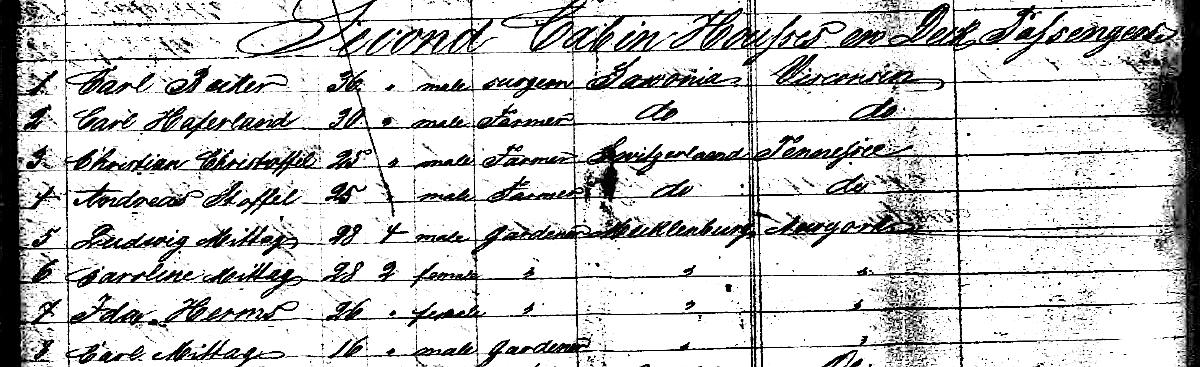 Second Cabin Housses on Deck Passengers
1 Carl 36 " male surgeon Saxonia Wisconsin
2 Carl Haferland 30 " male Farmer do do
3 Christian Christoffel 25 " male Farmer Switzerland Tennessee
4 Andreas Stoffel 25 male Farmer do do
5 Ludwig Mittag 28 4 male Gardener Mecklenburg Newyork
6 Caroline Mittag 28 2 female " " "
7 Ida Herms 26 " female " " "
8 Carl Mittag 16 " male Gardener " "